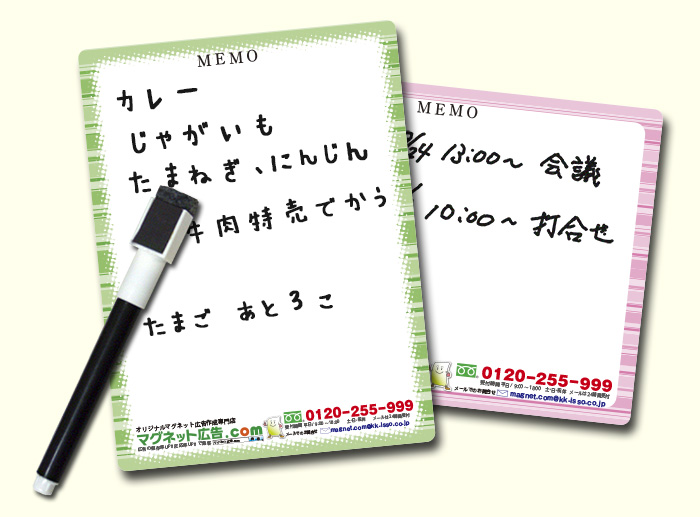 MEMO
カレー
じゃがいも
たまねぎ、にんじん
牛肉特売でかう
たまご あと3こ
オリジナルマグネット広告作成専門店
マグネット広告.com
0120-255-999
magnet.com@kk-isso.co.jp
MEMO
/24 13:00〜 会議
10:00〜 打合せ
0120-255-999
受付時間 平日/9:00〜18:00 土・日・祭日 メールは24時間受付
メールでのお問合せ magnet.com@kk-isso.co.jp